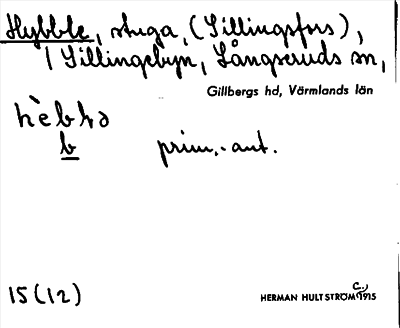 Hybble, stuga, (Sillingsfors),
1 Sillingebyn, Långseruds sn,
Gillbergs hd, Värmlands län
b prim.-ant.
15(12)
HERMAN HULTSTRÖM C:a 1915